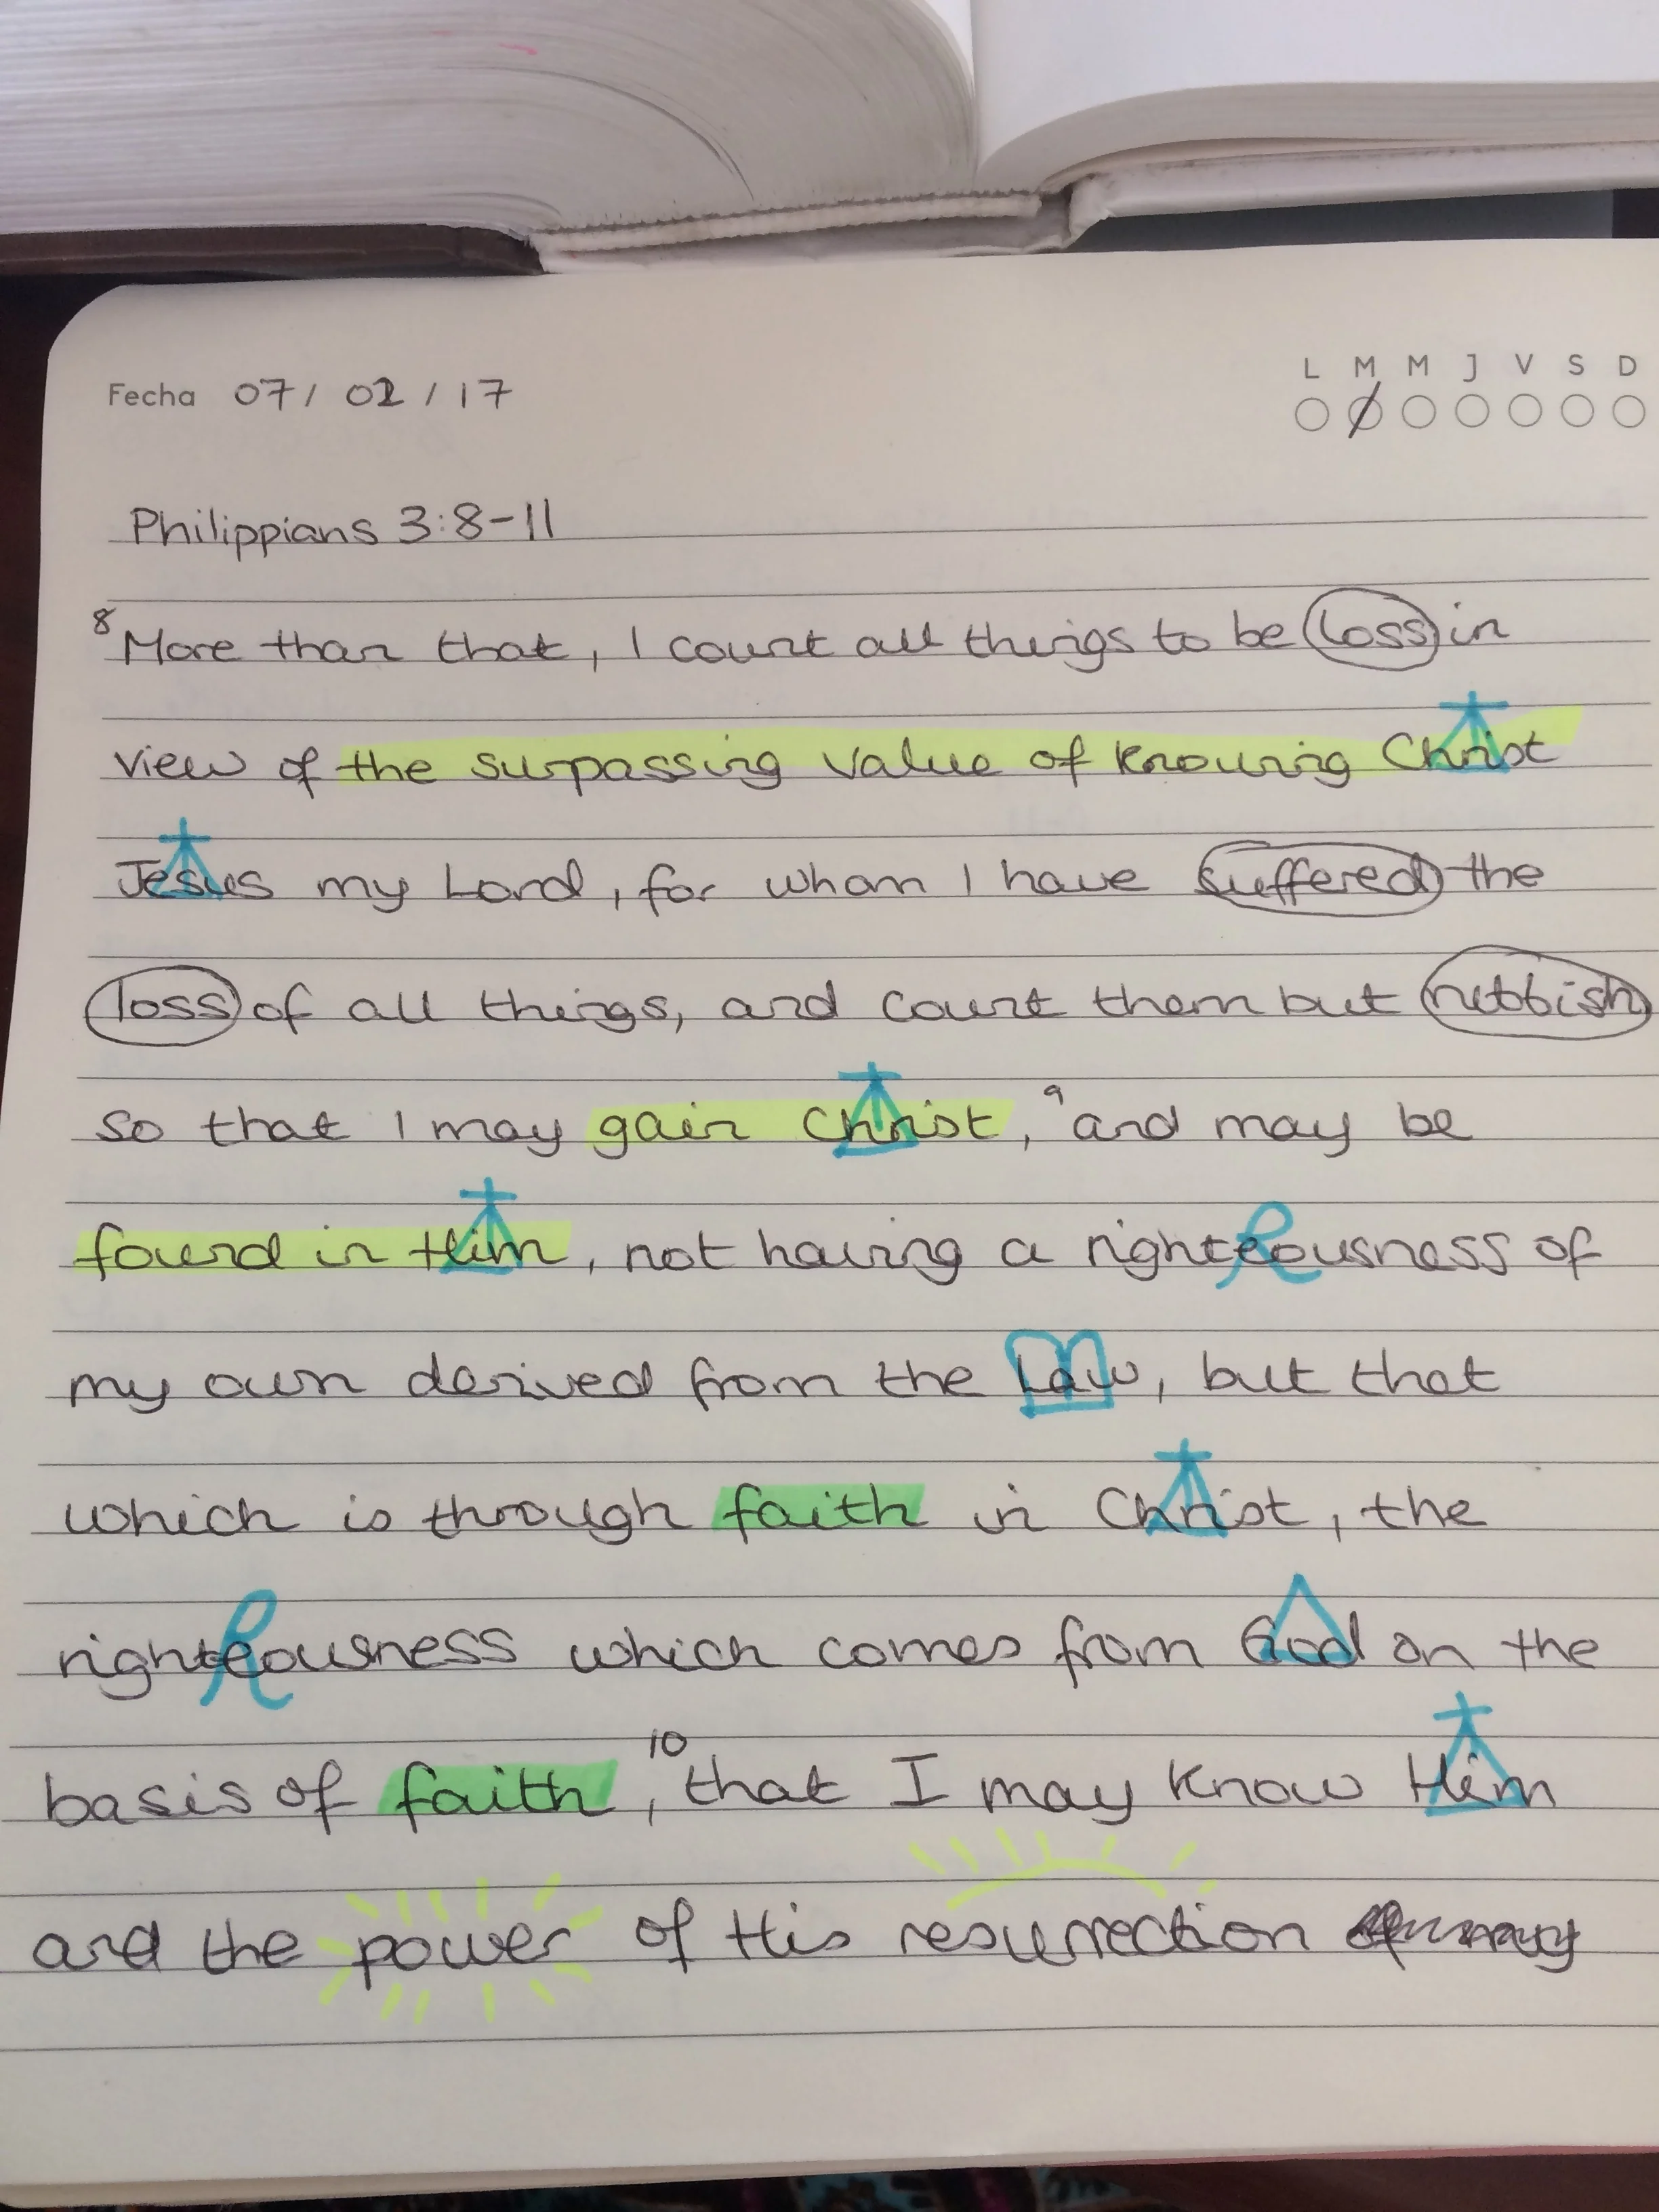 L M M J V S D
Fecha 07/ 02 / 17
Philippians 3:8-11
8 More than that, I count all things to be loss in
view of the surpassing value of knowing Christ
Jesus my Lord, for whom I have suffered the
loss of all things, and count them but rubbish
so that I may gain Christ, 9 and may be
found in Him, not having a righteousness of
my own derived from the Law, but that
which is through faith in Christ, the
righteousness which comes from God on the
basis of faith, 10 that I may know Him
and the power of His resurrection